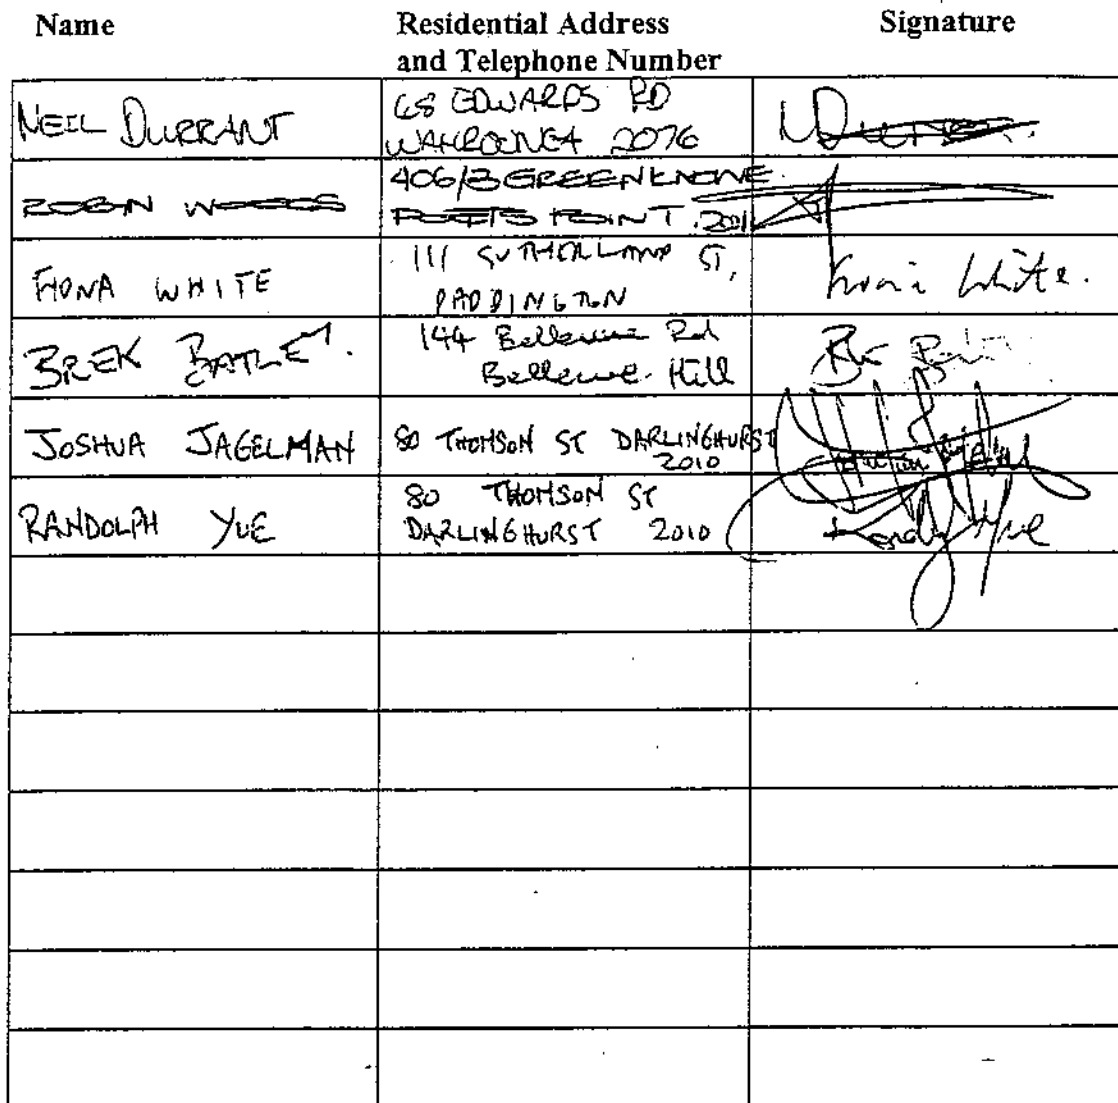 Name Residential Address Signature
and Telephone Number
NEIL DURRANT 68 EDWARDS RD
WAHROONGA 2076
ROBIN WOODS 406/3 GREENKNOWE
POTTS POINT. 2011
FIONA WHITE 111 SUTHERLAND ST,
PADDINGTON Fiona White.
BREK BATLEY. 144 Bellevue Rd
Bellevue Hill
JOSHUA JAGELMAN 80 THOMSON ST DARLINGHURST
2010
RANDOLPH YUE 80 THOMSON ST
DARLINGHURST 2010 Randolph Yue